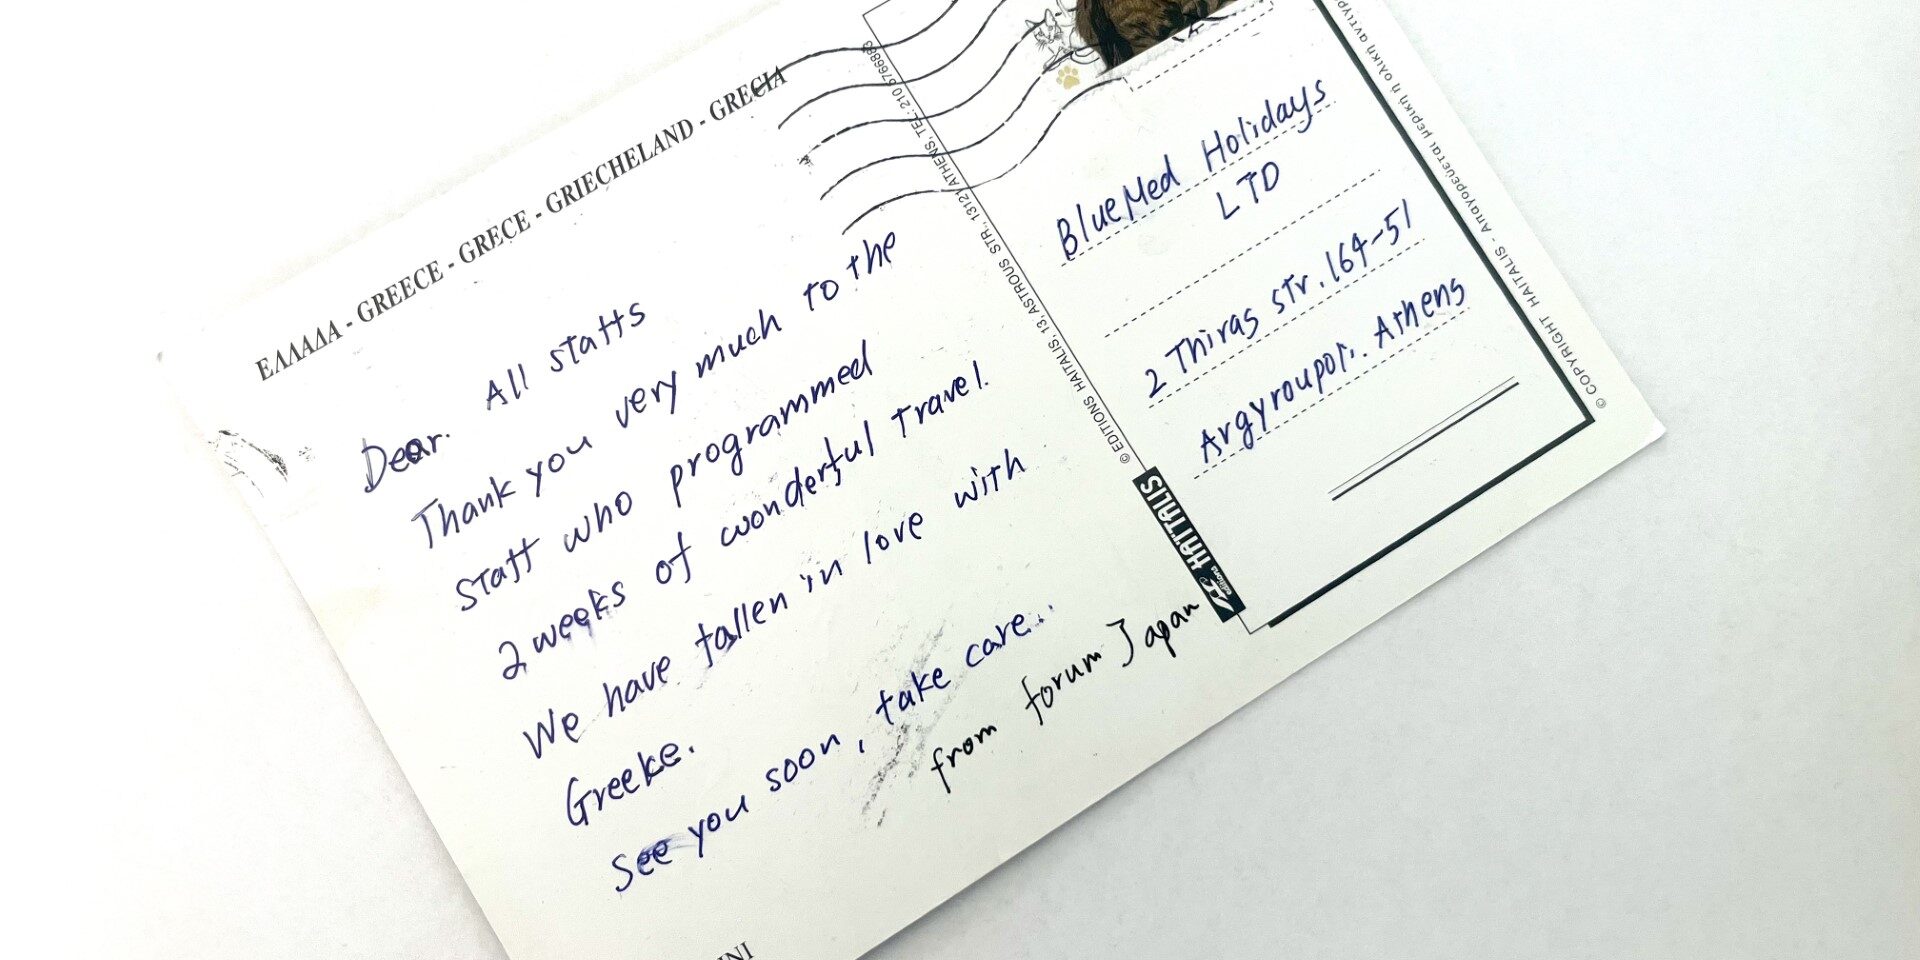 ΕΛΛΑΔΑ - GREECE - GRECE - GRIECHELAND - GRECIA
Dear. All staffs
Thank you very much to the
staff who programmed
2 weeks of wonderful travel.
We have fallen in love with
Greeke.
See you soon, take care..
from forum Japan
BlueMed Holidays
LTD
2 Thiras str. 164-51
Argyroupoli. Athens
© EDITIONS HAITALIS, 13, ASTROUS STR., 13121 ATHENS, TEL.: 210 5766883
editions HAΪTALIS
© COPYRIGHT HAITALIS - Απαγορεύεται μερική ή ολική